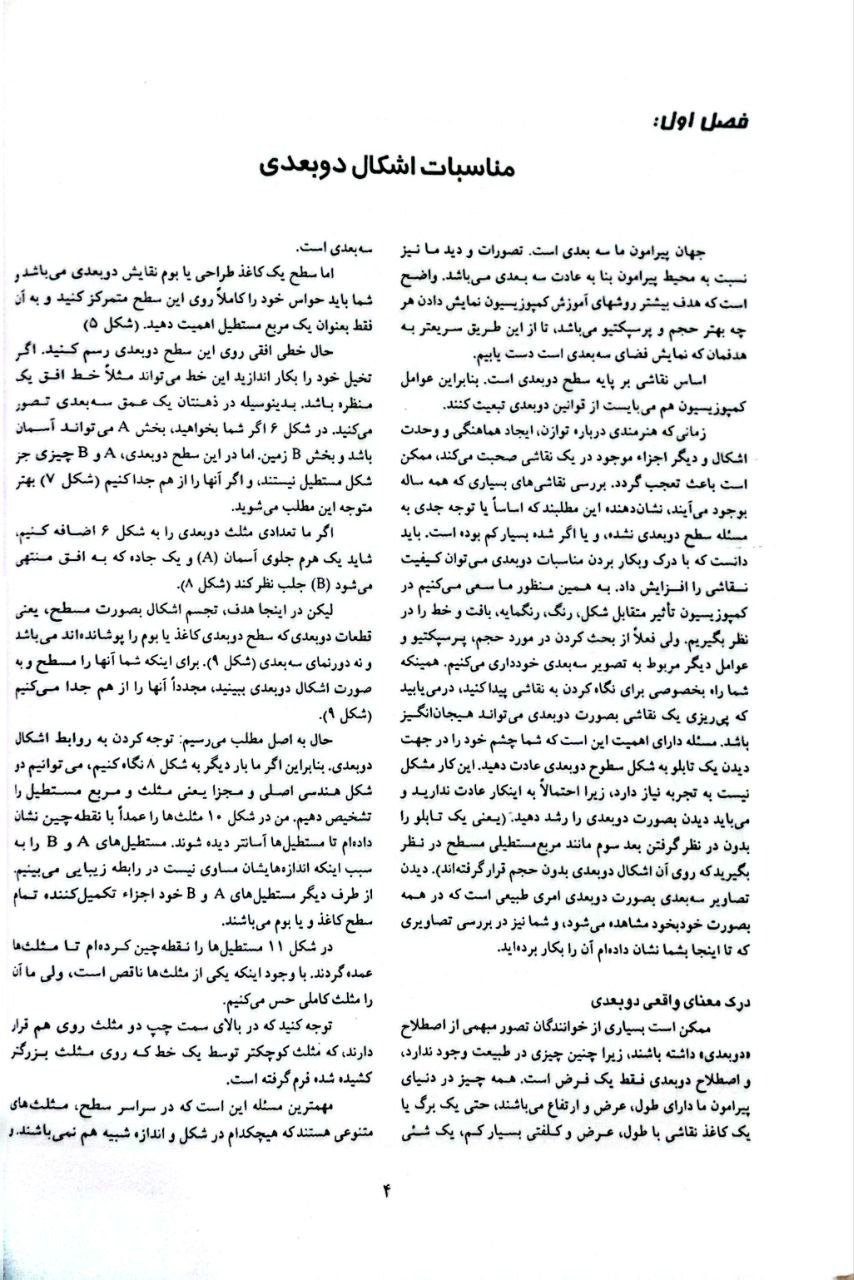 فصل اول:
مناسبات اشکال دوبعدی
جهان پیرامون ما سه بعدی است. تصورات و دید ما نیز
نسبت به محیط پیرامون بنا به عادت سه بعدی می‌باشد. واضح
است که هدف بیشتر روشهای آموزش کمپوزیسیون نمایش دادن هر
چه بهتر حجم و پرسپکتیو می‌باشد، تا از این طریق سریعتر به
هدفمان که نمایش فضای سه‌بعدی است دست یابیم.
اساس نقاشی بر پایه سطح دوبعدی است. بنابراین عوامل
کمپوزیسیون هم می‌بایست از قوانین دوبعدی تبعیت کنند.
زمانی‌که هنرمندی درباره توازن، ایجاد هماهنگی و وحدت
اشکال و دیگر اجزاء موجود در یک نقاشی صحبت می‌کند، ممکن
است باعث تعجب گردد. بررسی نقاشی‌های بسیاری که همه ساله
بوجود می‌آیند، نشان‌دهنده این مطلبند که اساساً یا توجه جدی به
مسئله سطح دوبعدی نشده، و یا اگر شده بسیار کم بوده است. باید
دانست که با درک وبکار بردن مناسبات دوبعدی می‌توان کیفیت
نقاشی را افزایش داد. به همین منظور ما سعی می‌کنیم در
کمپوزیسیون تأثیر متقابل شکل، رنگ، رنگمایه، بافت و خط را در
نظر بگیریم. ولی فعلاً از بحث کردن در مورد حجم، پرسپکتیو و
عوامل دیگر مربوط به تصویر سه‌بعدی خودداری می‌کنیم. همینکه
شما راه بخصوصی برای نگاه کردن به نقاشی پیدا کنید، درمی‌یابید
که پی‌ریزی یک نقاشی بصورت دوبعدی می‌تواند هیجان‌انگیز
باشد. مسئله دارای اهمیت این است که شما چشم خود را در جهت
دیدن یک تابلو به شکل سطوح دوبعدی عادت دهید. این کار مشکل
نیست به تجربه نیاز دارد، زیرا احتمالاً به اینکار عادت ندارید و
می‌باید دیدن بصورت دوبعدی را رشد دهید. (یعنی یک تابلو را
بدون در نظر گرفتن بعد سوم مانند مربع‌مستطیلی مسطح در نظر
بگیریدکه روی آن اشکال دوبعدی بدون حجم قرار گرفته‌اند). دیدن
تصاویر سه‌بعدی بصورت دوبعدی امری طبیعی است که در همه
بصورت خودبخود مشاهده می‌شود، و شما نیز در بررسی تصاویری
که تا اینجا بشما نشان داده‌ام آن را بکار برده‌اید.
درک معنای واقعی دوبعدی
ممکن است بسیاری از خوانندگان تصور مبهمی از اصطلاح
«دوبعدی» داشته باشند، زیرا چنین چیزی در طبیعت وجود ندارد،
و اصطلاح دوبعدی فقط یک فرض است. همه چیز در دنیای
پیرامون ما دارای طول، عرض و ارتفاع می‌باشند، حتی یک برگ یا
یک کاغذ نقاشی با طول، عرض و کلفتی بسیار کم، یک شئی
سه‌بعدی است.
اما سطح یک کاغذ طراحی یا بوم نقایش دوبعدی می‌باشد و
شما باید حواس خود را کاملاً روی این سطح متمرکز کنید و به آن
فقط بعنوان یک مربع مستطیل اهمیت دهید. (شکل ۵)
حال خطی افقی روی این سطح دوبعدی رسم کنید. اگر
تخیل خود را بکار اندازید این خط می‌تواند مثلاً خط افق یک
منظره باشد. بدینوسیله در ذهنتان یک عمق سه‌بعدی تصور
می‌کنید. در شکل ۶ اگر شما بخواهید، بخش A می‌تواند آسمان
باشد و بخش B زمین. اما در این سطح دوبعدی، A و B چیزی جز
شکل مستطیل نیستند، و اگر آنها را از هم جدا کنیم (شکل ۷) بهتر
متوجه این مطلب می‌شوید.
اگر ما تعدادی مثلث دوبعدی را به شکل ۶ اضافه کنیم،
شاید یک هرم جلوی آسمان (A) و یک جاده که به افق منتهی
می‌شود (B) جلب نظر کند (شکل ۸).
لیکن در اینجا هدف، تجسم اشکال بصورت مسطح، یعنی
قطعات دوبعدی‌که سطح دوبعدی کاغذ یا بوم را پوشانده‌اند می‌باشد
و نه دورنمای سه‌بعدی (شکل ۹). برای اینکه شما آنها را مسطح و به
صورت اشکال دوبعدی ببینید، مجدداً آنها را از هم جدا می‌کنیم
(شکل ۹).
حال به اصل مطلب می‌رسیم: توجه کردن به روابط اشکال
دوبعدی. بنابراین اگر ما بار دیگر به شکل ۸ نگاه کنیم، می توانیم دو
شکل هندسی اصلی و مجزا یعنی مثلث و مربع مستطیل را
تشخیص دهیم. من در شکل ۱۰ مثلث‌ها را عمداً با نقطه‌چین نشان
داده‌ام تا مستطیل‌ها آسانتر دیده شوند. مستطیل‌های A و B را به
سبب اینکه اندازه‌هایشان مساوی نیست در رابطه زیبایی می‌بینیم.
از طرف دیگر مستطیل‌های A و B خود اجزاء تکمیل‌کننده تمام
سطح کاغذ و یا بوم می‌باشند.
در شکل ۱۱ مستطیل‌ها را نقطه‌چین کرده‌ام تا مثلث‌ها
عمده گردند. با وجود اینکه یکی از مثلث‌ها ناقص است، ولی ما آن
را مثلث کاملی حس می‌کنیم.
توجه کنید که در بالای سمت چپ دو مثلث روی هم قرار
دارند، که مثلث کوچکتر توسط یک خط که روی مثلث بزرگتر
کشیده شده فرم گرفته است.
مهمترین مسئله این است که در سراسر سطح، مثلث‌های
متنوعی هستندکه هیچکدام در شکل و اندازه شبیه هم نمی‌باشند. و
۴